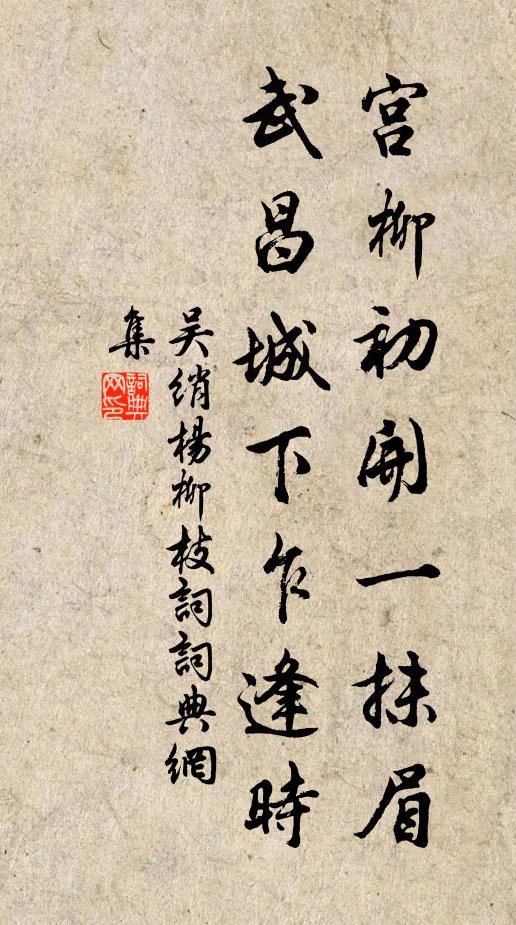 宮柳初開一抹眉
武昌城下乍逢時
吴綃楊柳枝詞詞典網
集
詞典
网印